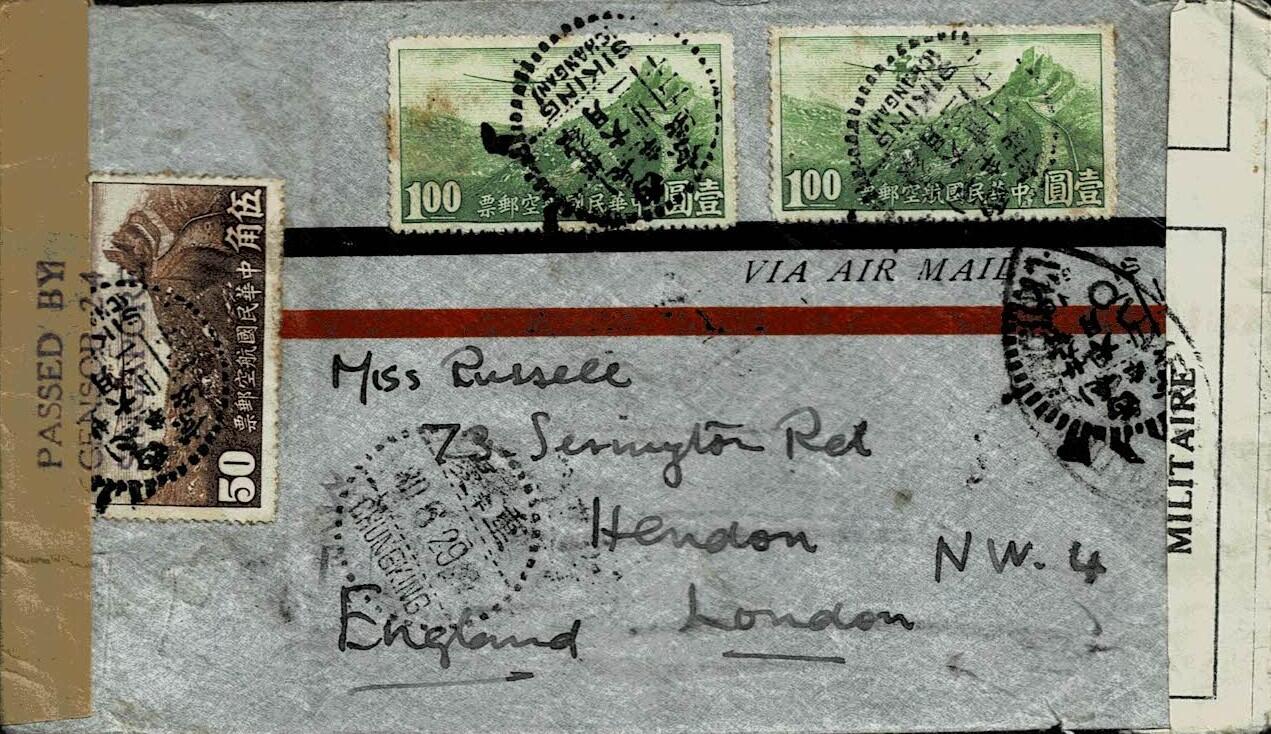 SIKING
(CHANGAN)
1.00 中華民國航空郵票 壹圓
SIKING
(CHANGAN)
1.00 中華民國航空郵票 壹圓
伍角
中華民國航空郵票
50
PASSED BY
CENSOR 24
VIA AIR MAIL
Miss Russell
73 Sevington Rd
Hendon
NW. 4
London
England
40 6 29
CHUNGKING
MILITAIRE